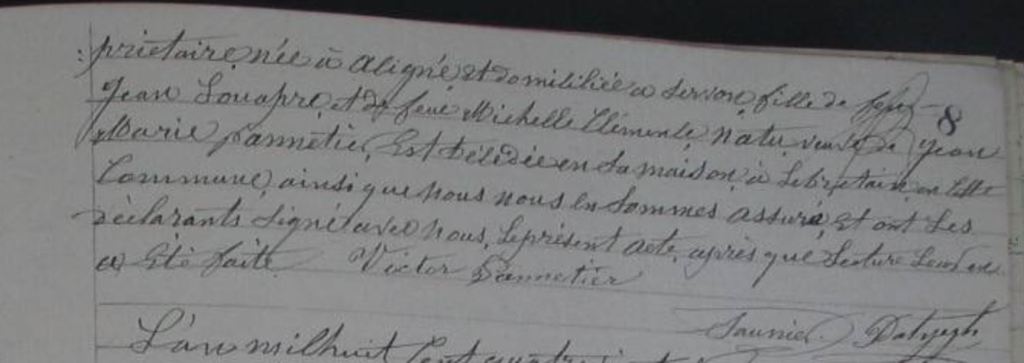 priétaire, née à Aligné et domiliciée à Servon, fille de feu
8
Jean Louapre, et de feue Michelle Clémence Natu, veuve de Jean
Marie Pannetier, Est décédée en sa maison, à en cette
Commune, ainsi que nous nous en sommes assuré, et ont les
déclarants signé avec nous, le présent acte, après que lecture leur en
a été faite. Victor Pannetier
Saunier
L'an mil huit cent quatre